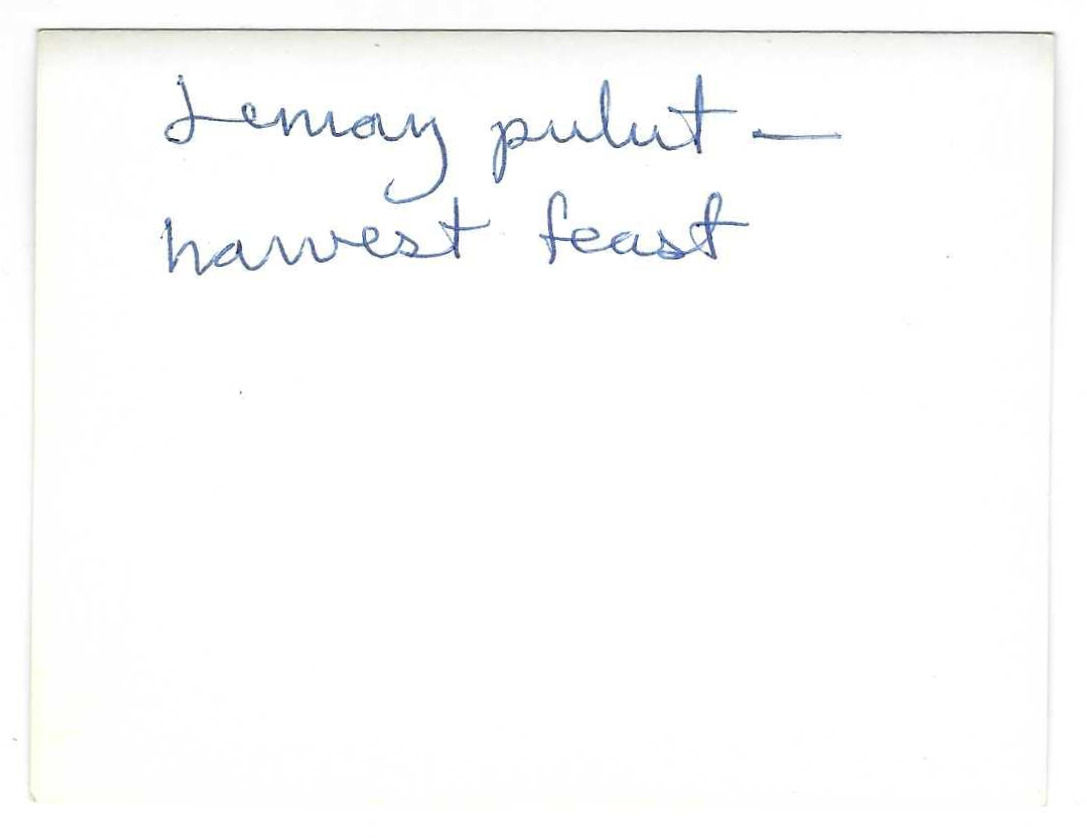 Jemay pulut —
harvest feast